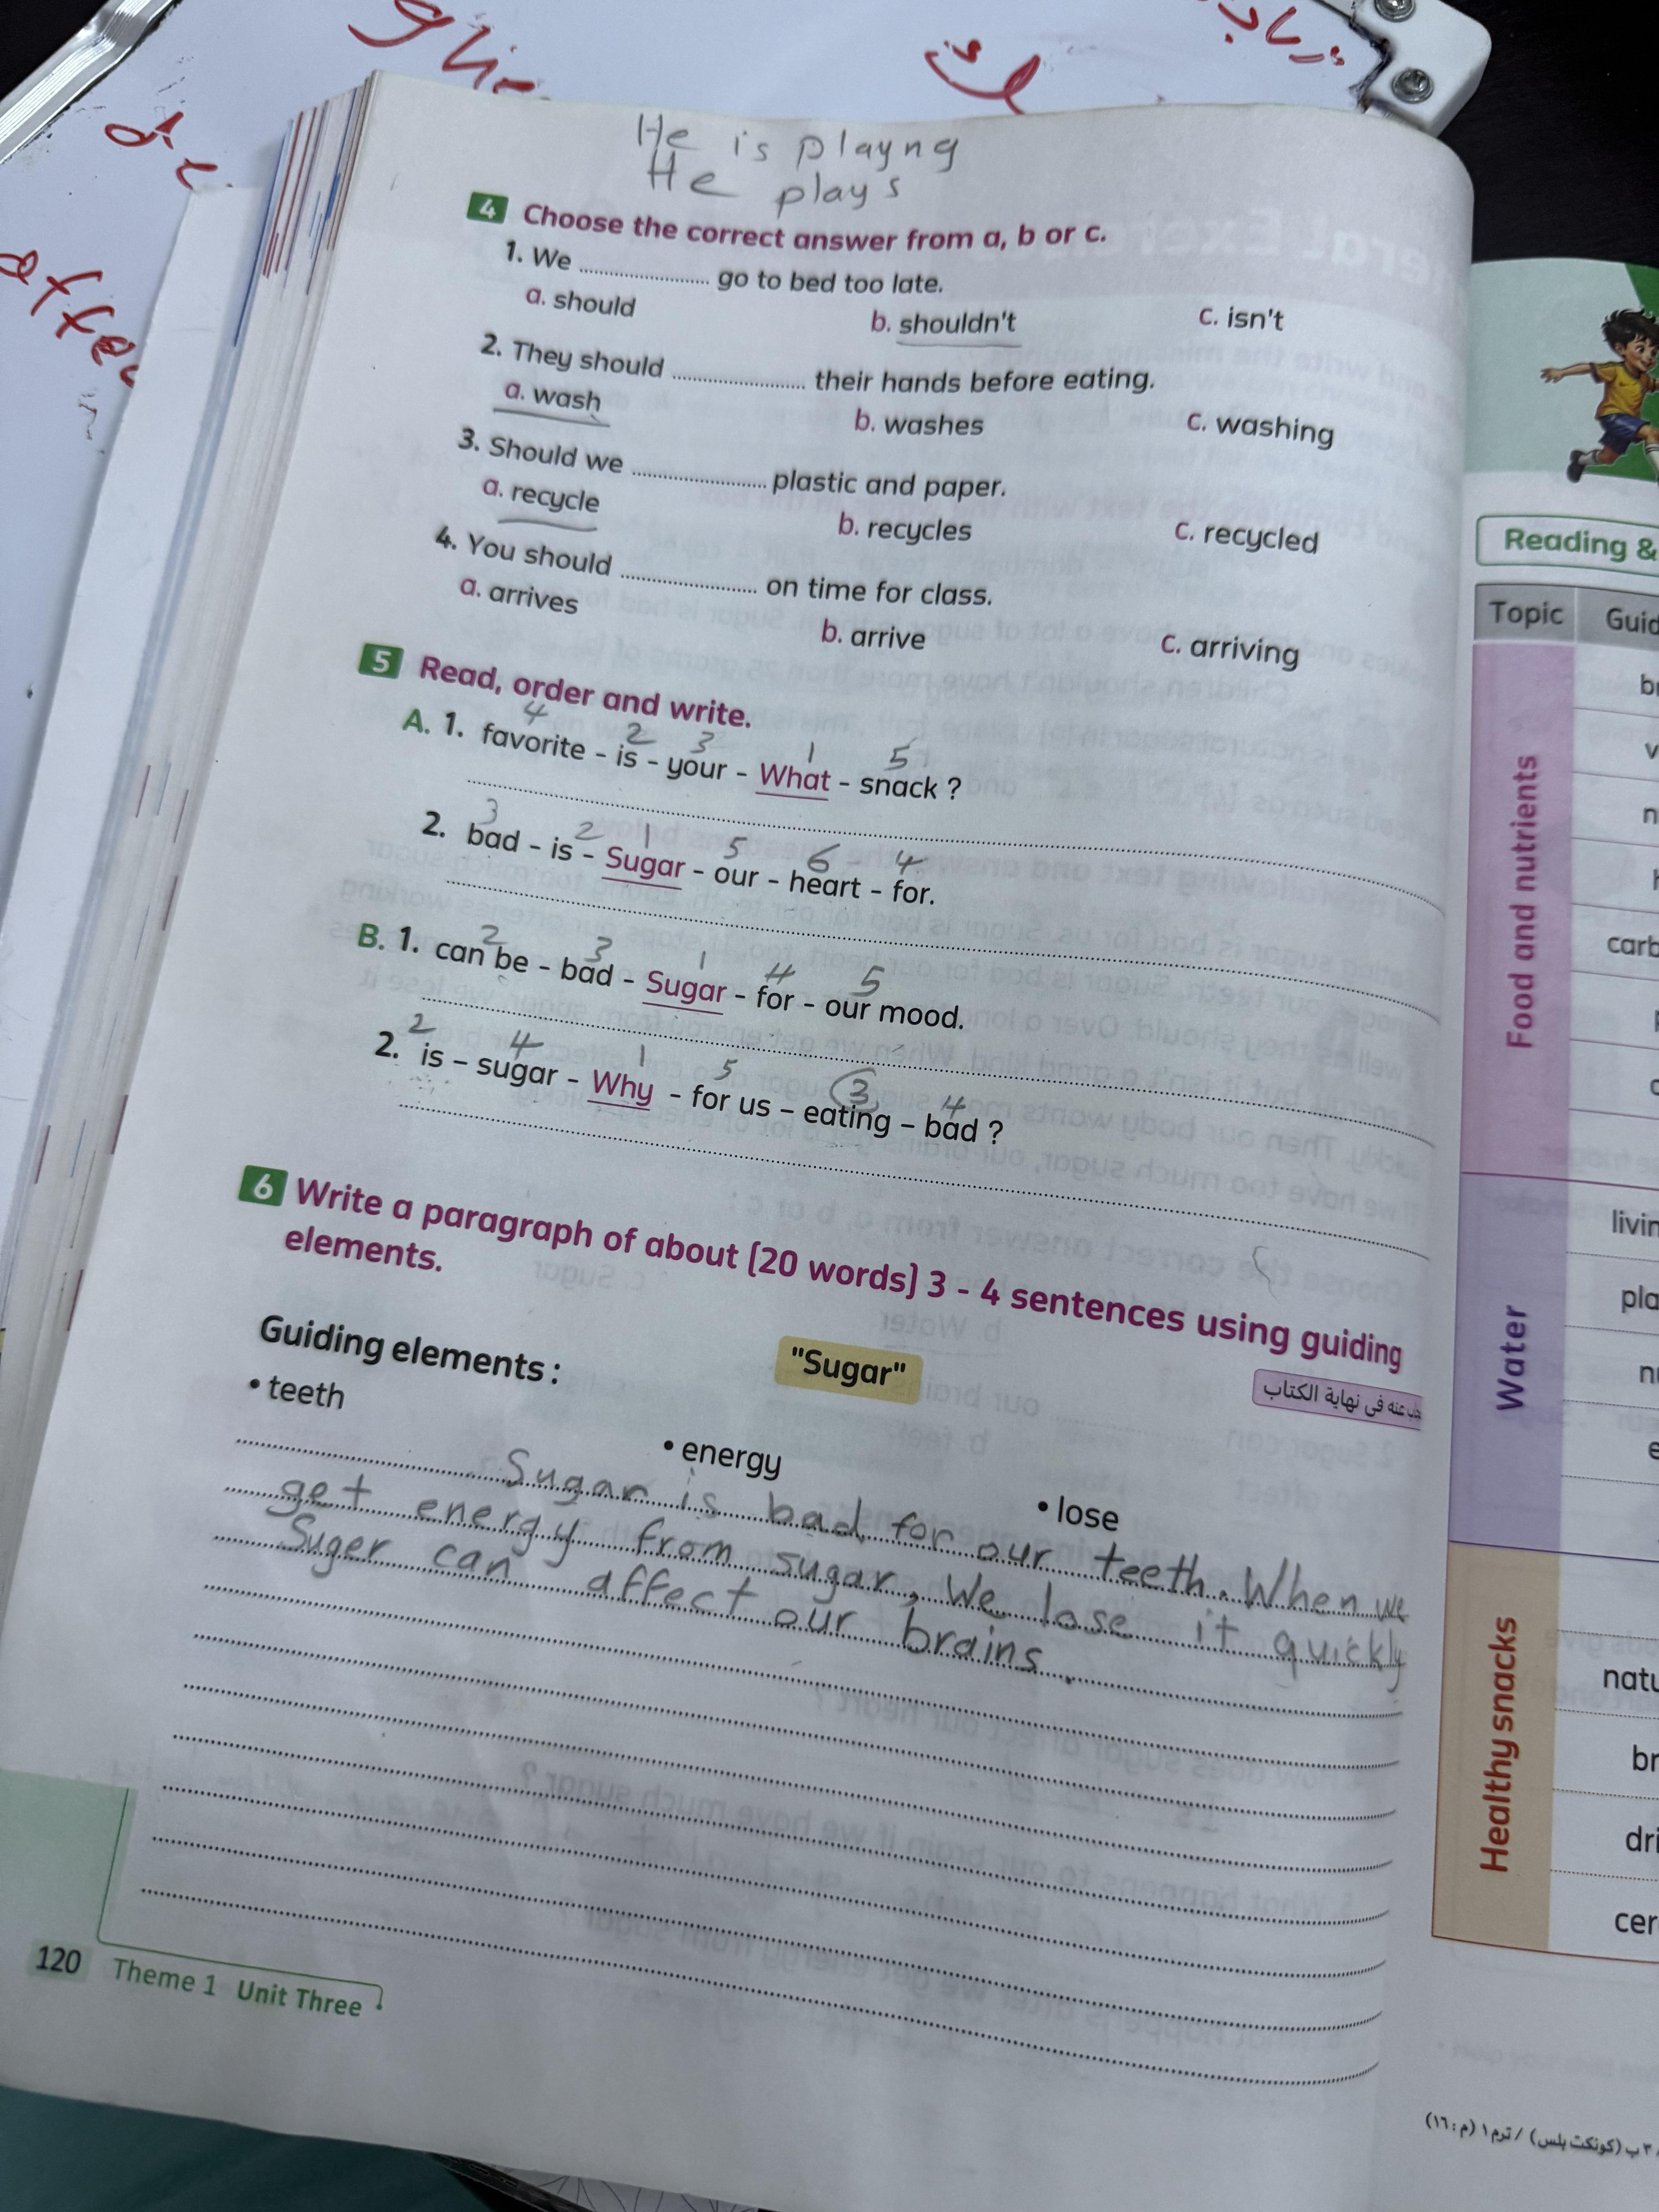 He is playng
He plays
4 Choose the correct answer from a, b or c.
1. We ........................ go to bed too late.
a. should b. shouldn't c. isn't
2. They should ........................ their hands before eating.
a. wash b. washes c. washing
3. Should we ........................ plastic and paper.
a. recycle b. recycles c. recycled
4. You should ........................ on time for class.
a. arrives b. arrive c. arriving
5 Read, order and write.
4 2 3 1 5
A. 1. favorite - is - your - What - snack ?
3 2 1 5 6 4
2. bad - is - Sugar - our - heart - for.
2 3 1 4 5
B. 1. can be - bad - Sugar - for - our mood.
2 4 1 5 3 4
2. is - sugar - Why - for us - eating - bad ?
6 Write a paragraph of about (20 words) 3 - 4 sentences using guiding
elements.
Guiding elements : "Sugar"
فى نهاية الكتاب
• teeth • energy • lose
Sugar is bad for our teeth. When we
get energy from sugar, We lose it quickly
Suger can affect our brains.
120 Theme 1 Unit Three
Reading &
Topic
Food and nutrients
Water
Healthy snacks
(كونكت بلس) / ترم ١ (م : ١٦)